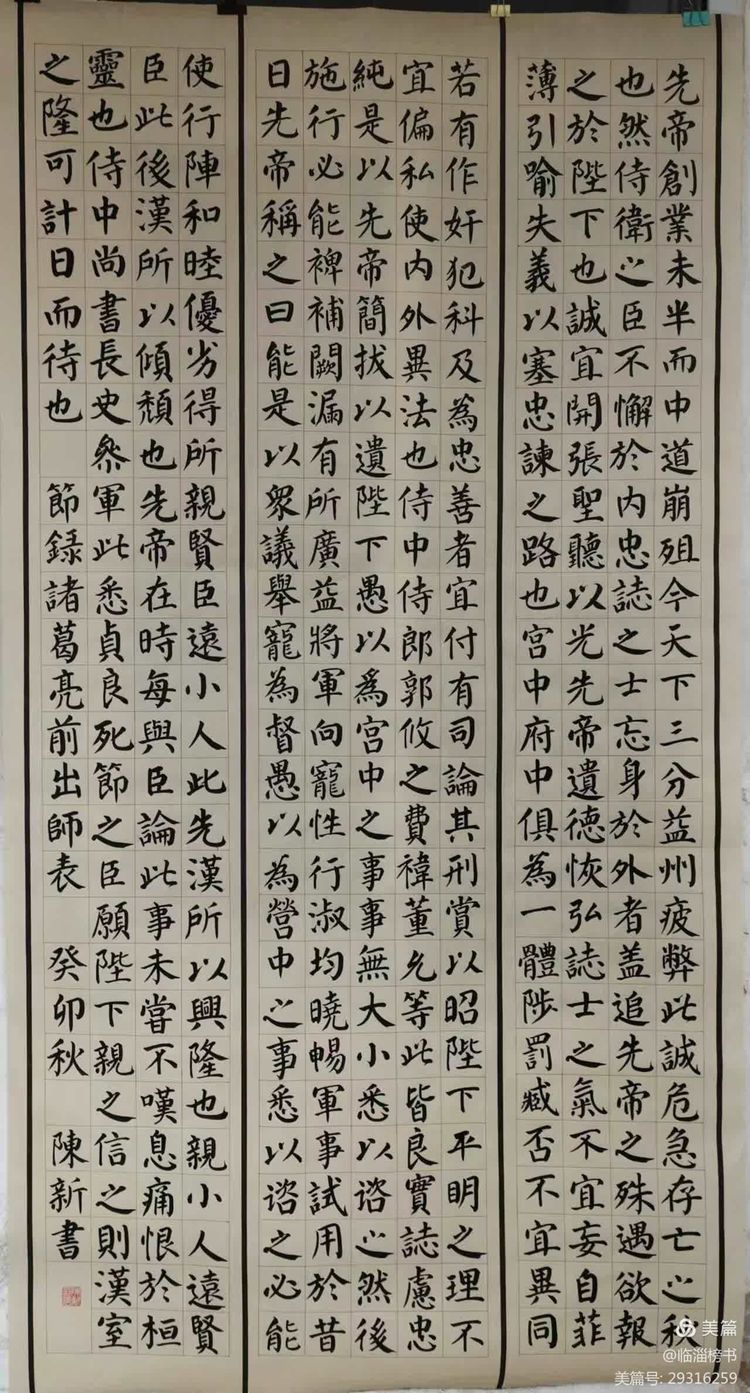 先帝創業未半而中道崩殂今天下三分益州疲弊此誠危急存亡之秋
也然侍衛之臣不懈於內忠誌之士忘身於外者盖追先帝之殊遇欲報
之於陛下也誠宜開張聖聽以光先帝遺德恢弘誌士之氣不宜妄自菲
薄引喻失義以塞忠諫之路也宮中府中俱為一體陟罰臧否不宜異同
若有作奸犯科及為忠善者宜付有司論其刑賞以昭陛下平明之理不
宜偏私使內外異法也侍中侍郎郭攸之費禕董允等此皆良實誌慮忠
純是以先帝簡拔以遺陛下愚以爲宮中之事事無大小悉以諮之然後
施行必能裨補闕漏有所廣益將軍向寵性行淑均曉暢軍事試用於昔
日先帝稱之曰能是以眾議舉寵為督愚以為營中之事悉以諮之必能
使行陣和睦優劣得所親賢臣遠小人此先漢所以興隆也親小人遠賢
臣此後漢所以傾頹也先帝在時每與臣論此事未嘗不嘆息痛恨於桓
靈也侍中尚書長史參軍此悉貞良死節之臣願陛下親之信之則漢室
之隆可計日而待也 節録諸葛亮前出師表 癸卯秋 陳新書
美篇
@临淄榜书
美篇号: 29316259